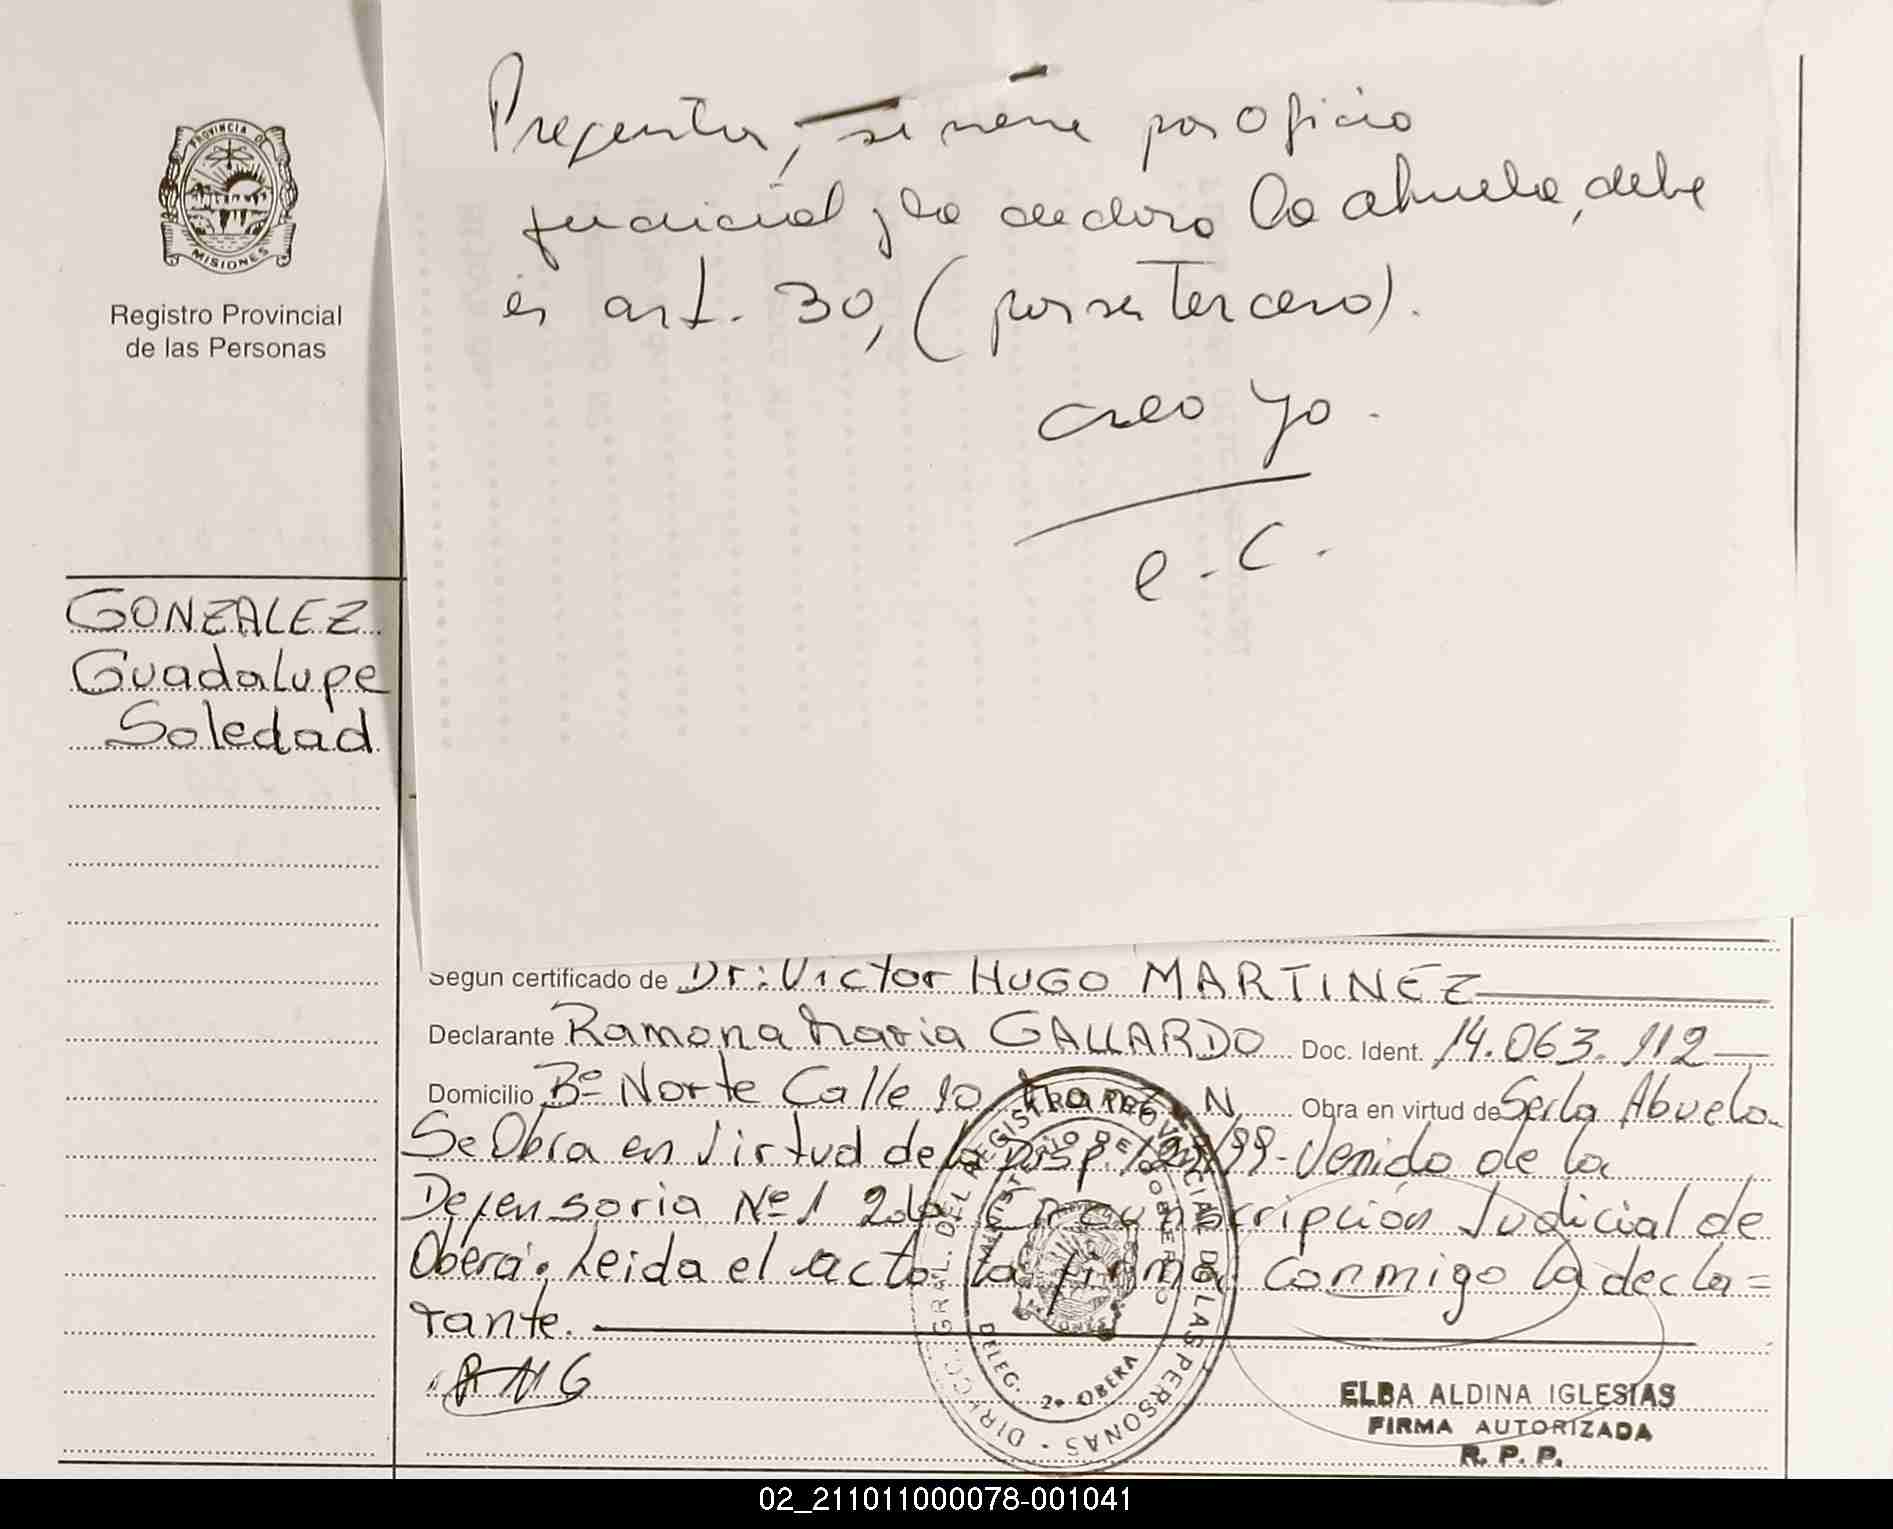 Preguntar, si viene por Oficio
judicial y la declara la abuela, debe
ir art. 30, (por ser Tercero).
creo yo.
e.C.
PROVINCIA DE
MISIONES
Registro Provincial
de las Personas
GONZALEZ
Guadalupe
Soledad
Segun certificado de Dr: Victor HUGO MARTINEZ
Declarante Ramona Maria GALLARDO Doc. Ident. 14.063.112
Domicilio Bº Norte Calle 10 N Obra en virtud de Ser la Abuela
Se Obra en Virtud de la Disp. /99- Venido de la
Defensoria Nº 1 2da Circunscripción Judicial de
Oberá. Leida el acta la firma Conmigo la decla=
rante.
RMG
DIRECC. GRAL. DEL REGISTRO PROVINCIAL DE LAS PERSONAS
MINISTERIO DE GOBIERNO
DELEG. 2º OBERA
ELBA ALDINA IGLESIAS
FIRMA AUTORIZADA
R. P. P.
02_211011000078-001041